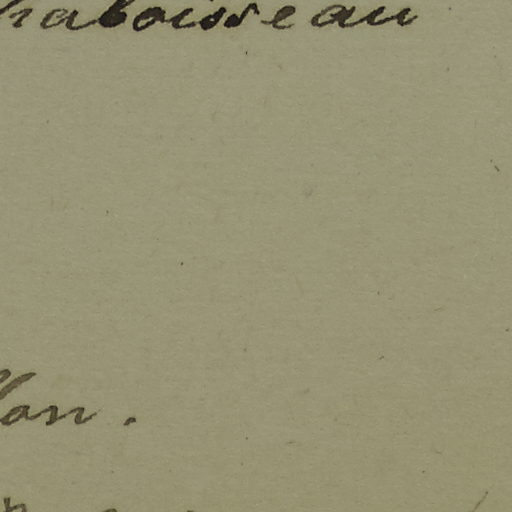 haboisseau
lon.